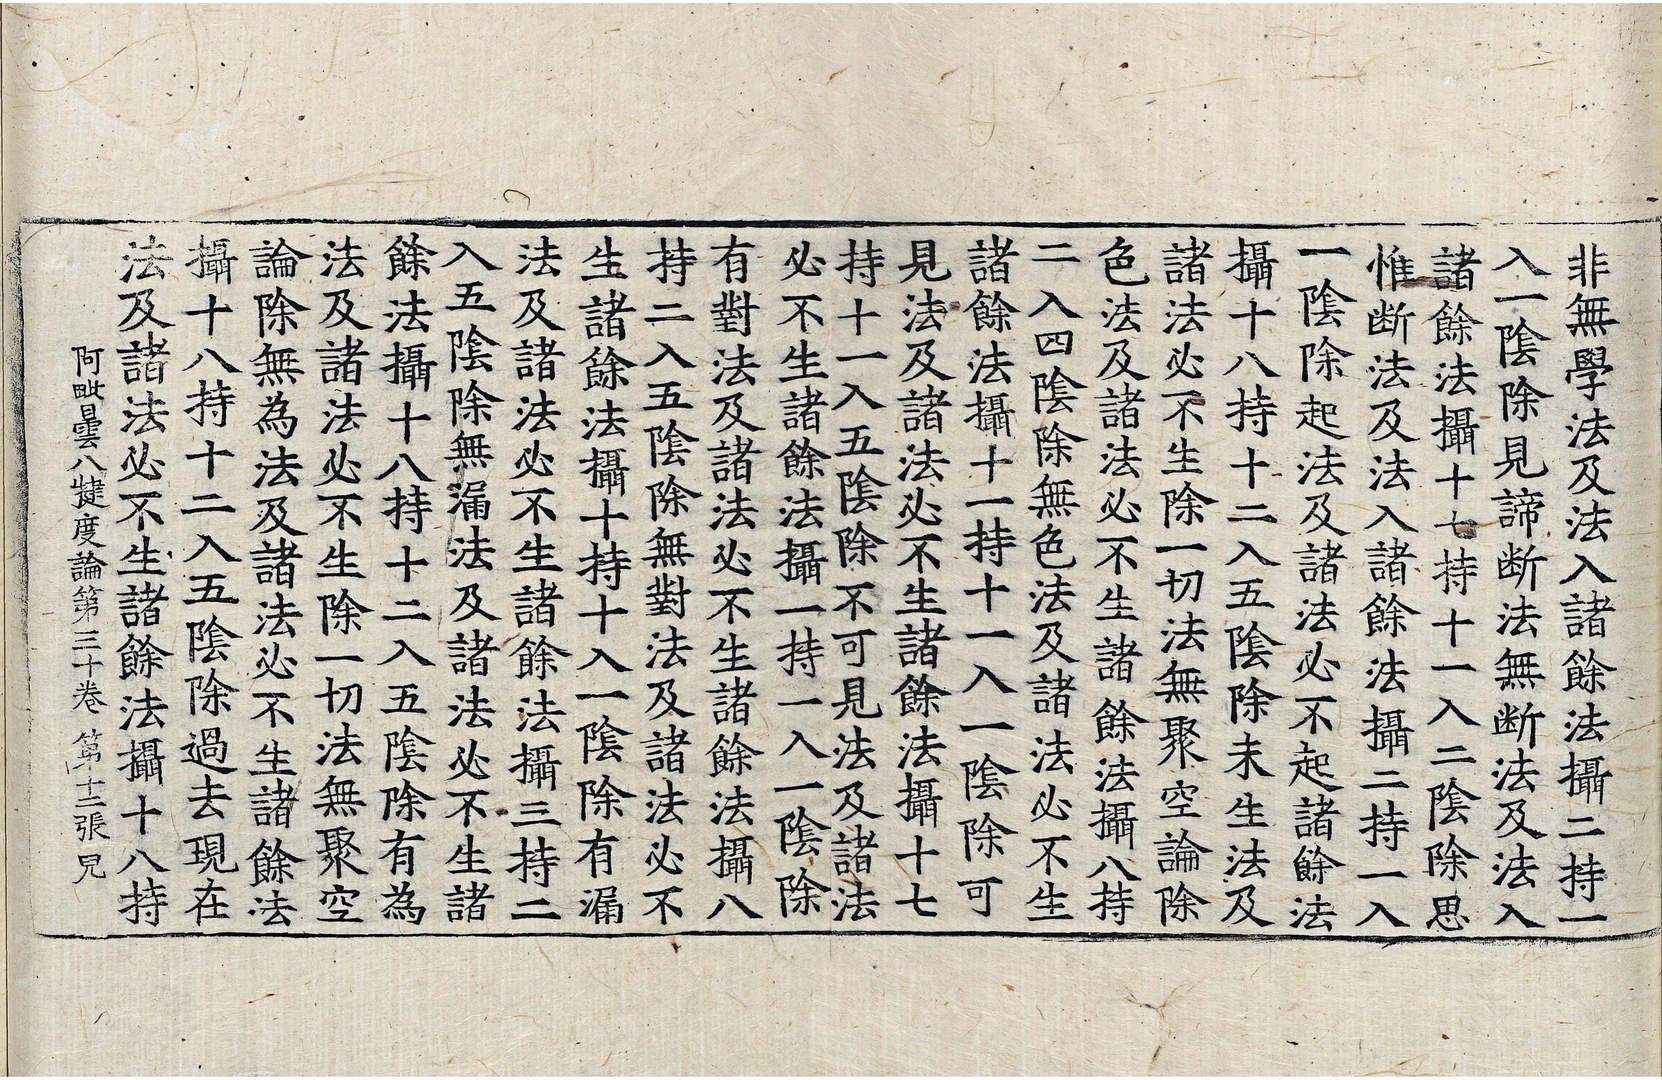 非無學法及法入諸餘法攝二持一
入一陰除見諦断法無断法及法入
諸餘法攝十七持十一入二陰除思
惟断法及法入諸餘法攝二持一入
一陰除起法及諸法必不起諸餘法
攝十八持十二入五陰除未生法及
諸法必不生除一切法無聚空論除
色法及諸法必不生諸餘法攝八持
二入四陰除無色法及諸法必不生
諸餘法攝十一持十一入一陰除可
見法及諸法必不生諸餘法攝十七
持十一入五陰除不可見法及諸法
必不生諸餘法攝一持一入一陰除
有對法及諸法必不生諸餘法攝八
持二入五陰除無對法及諸法必不
生諸餘法攝十持十入一陰除有漏
法及諸法必不生諸餘法攝三持二
入五陰除無漏法及諸法必不生諸
餘法攝十八持十二入五陰除有為
法及諸法必不生除一切法無聚空
論除無為法及諸法必不生諸餘法
攝十八持十二入五陰除過去現在
法及諸法必不生諸餘法攝十八持
阿毗曇八揵度論第三十卷 第十二張 兄